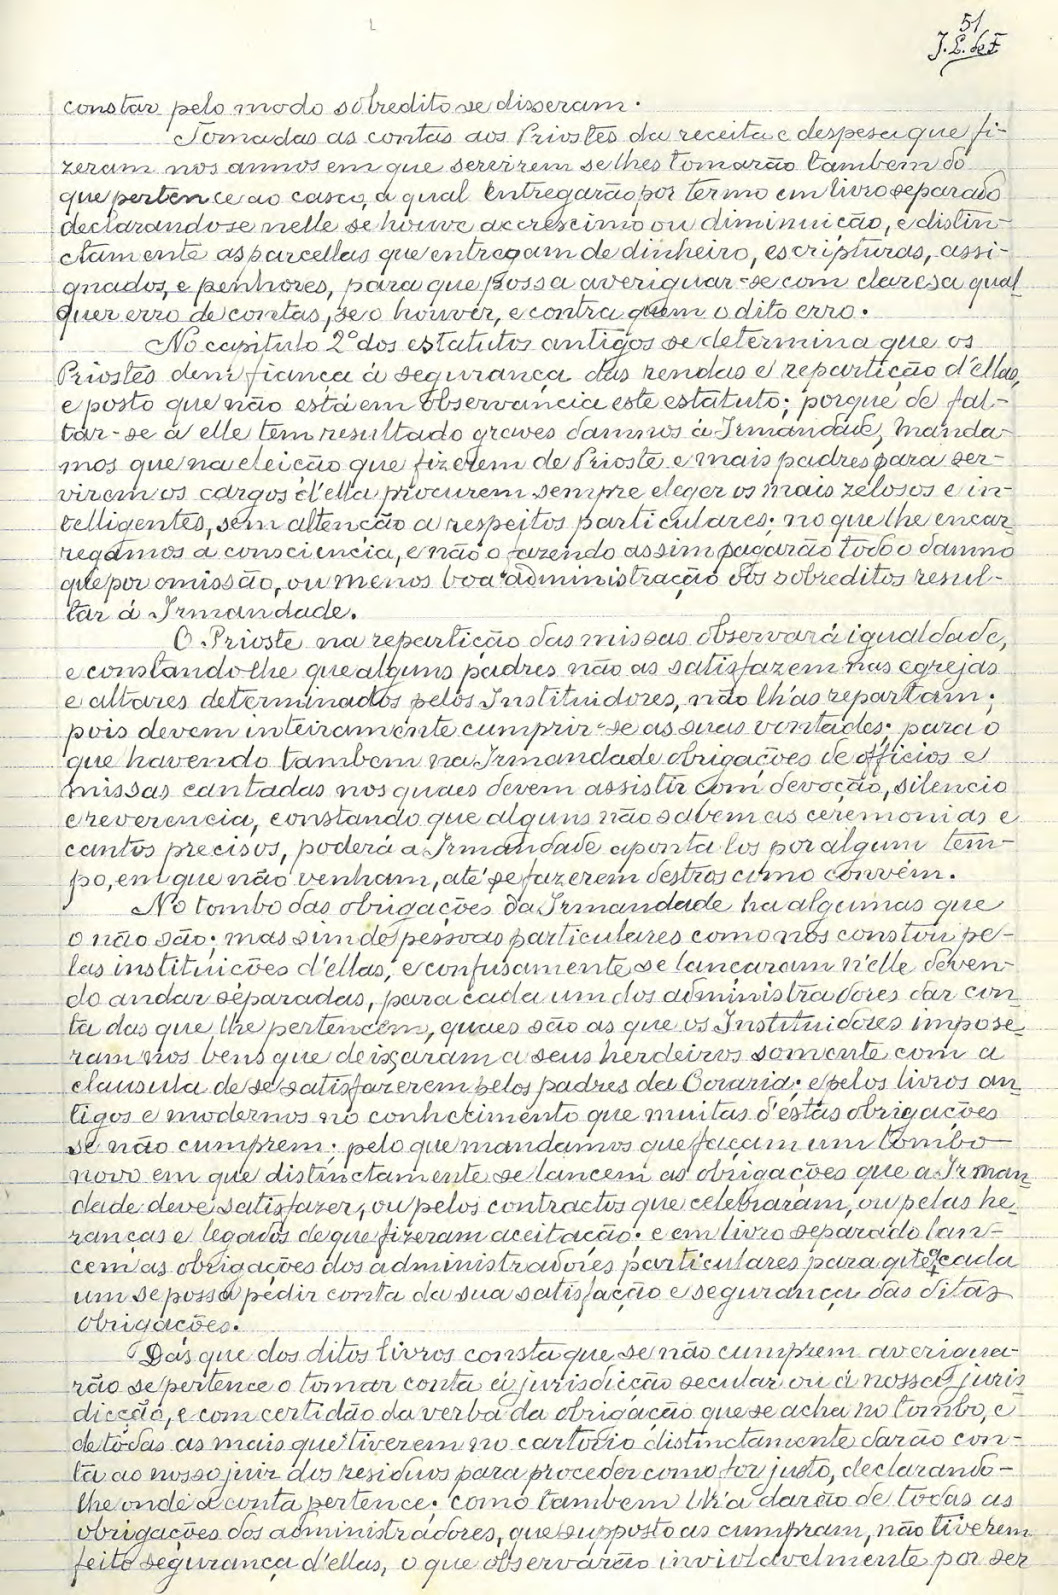 51
J. L. de F.
constar pelo modo sobredito se disseram.
Tomadas as contas aos Priostes da receita e despesa que fi-
zeram nos annos em que sereirem se lhes tomarão tambem do
que pertence ao casco, a qual entregarão por termo em livro separado
declarando-se nelle se houve accrescimo ou diminuição, e distin-
ctamente as parcellas que entregam de dinheiro, escripturas, assi-
gnados, e penhores, para que possa averiguar-se com claresa qual
quer erro de contas, se o houver, e contra quem o dito erro.
No capitulo 2º dos estatutos antigos se determina que os
Priostes dem fiança á segurança das rendas e repartição d'ellas,
e posto que não está em observancia este estatuto; porque de fal-
tar-se a elle tem resultado graves damnos á Irmandade, manda-
mos que na eleição que fizerem de Prioste e mais padres para ser-
virem os cargos d'ella procurem sempre eleger os mais zelosos e in-
telligentes, sem attenção a respeitos particulares; no que lhe encar-
regamos a consciencia, e não o fazendo assim pagarão todo o damno
que por omissão, ou menos boa administração dos sobreditos resul-
tar á Irmandade.
O Prioste na repartição das missas observará igualdade,
e constando-lhe que alguns padres não as satisfazem nas egrejas
e altares determinados pelos Instituidores, não lh'as repartam;
pois devem inteiramente cumprir-se as suas vontades; para o
que havendo tambem na Irmandade obrigações de officios e
missas cantadas nos quaes devem assistir com devoção, silencio
e reverencia, constando que alguns não sabem as ceremonias e
cantos precisos, poderá a Irmandade aponta los por algum tem-
po, em que não venham, até se fazerem destros como convém.
No tombo das obrigações da Irmandade ha algumas que
o não são; mas sim de pessoas particulares como nos constou pe-
las instituições d'ellas, e confusamente se lançaram n'elle deven-
do andar separadas, para cada um dos administradores dar con-
ta das que lhe pertencem, quaes são as que os Instituidores impose-
ram nos bens que deixaram a seus herdeiros somente com a
clausula de se satisfazerem pelos padres da Coraria; e pelos livros an-
tigos e modernos no conhecimento que muitas d'estas obrigações
se não cumprem; pelo que mandamos que façam um tombo
novo em que distinctamente se lancem as obrigações que a Irman-
dade deve satisfazer, ou pelos contractos que celebraram, ou pelas he-
ranças e legados de que fizeram aceitação; e em livro separado lan-
cem as obrigações dos administradores particulares para que a cada
um se possa pedir conta da sua satisfação e segurança das ditas
obrigações.
Das que dos ditos livros consta que se não cumprem averigua-
rão se pertence o tomar conta á jurisdicção secular ou á nossa juris
dicção, e com certidão da verba da obrigação que se acha no tombo, e
de todas as mais que tiverem no cartorio distinctamente darão con-
ta ao nosso juir dos residuos para proceder como for justo, declarando-
lhe onde a conta pertence; como tambem lh'a darão de todas as
obrigações dos administradores, que supposto as cumpram, não tiverem
feito segurança d'ellas, o que observarão inviolavelmente por ser